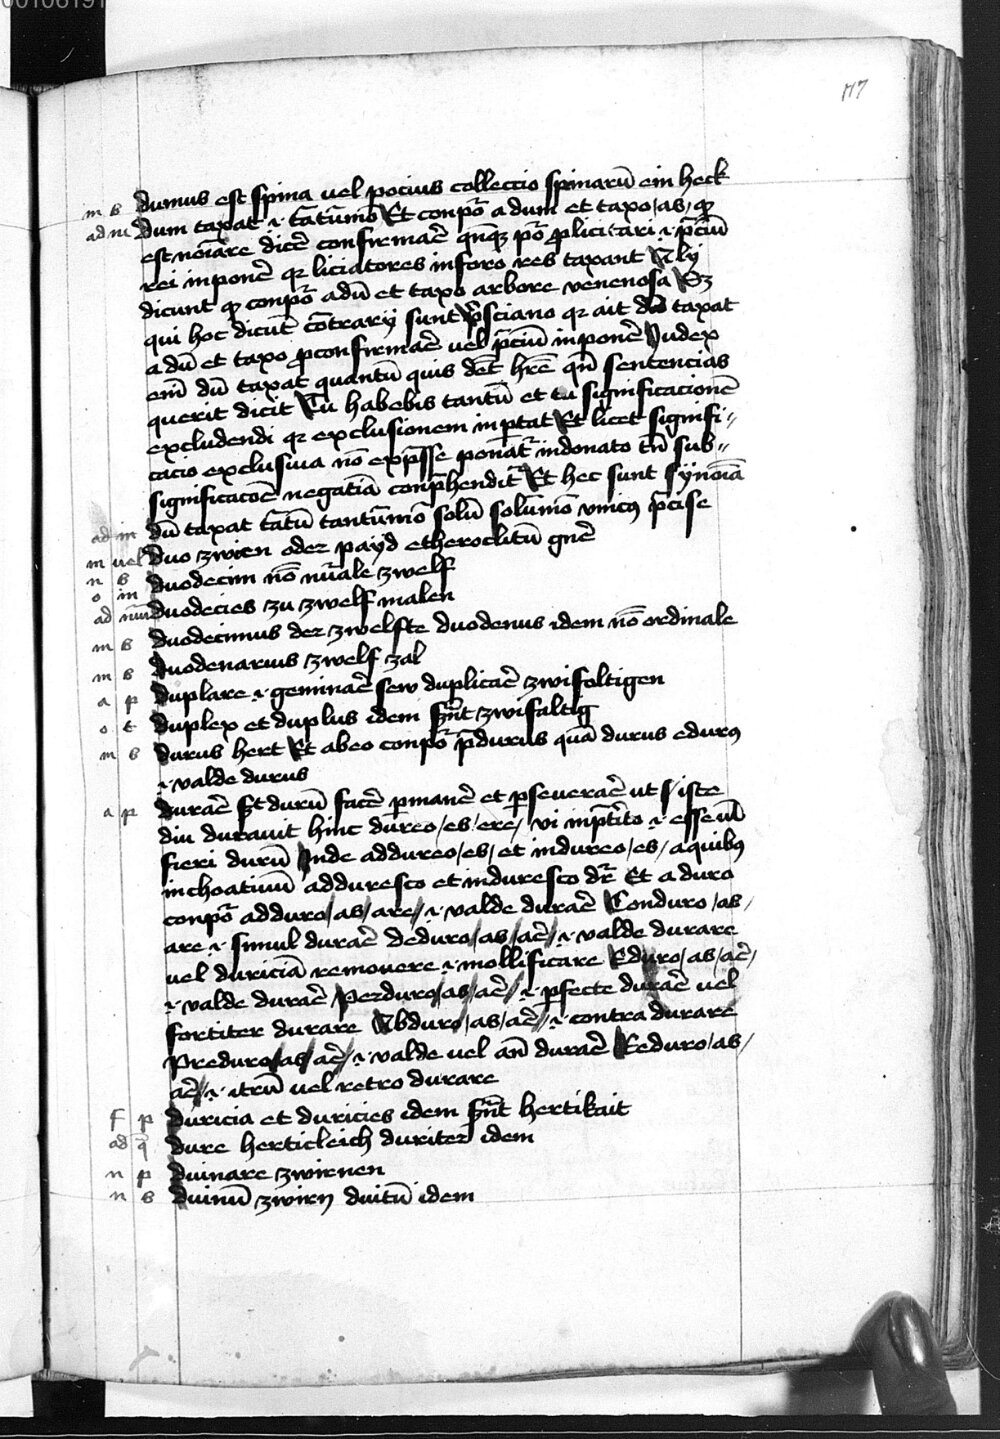 00106191
117
m b dumus est spina uel pocius collectio spinarū ein heck
ad ni Dum taxat .i. tātūmō Et conpōr a dum et taxo/as/ qd
est noīare dicē confirmaē qn̄qȝ pō plicitari .i. p̄ciū
rei inponē qr liciatores in foro res taxant Aly
dicunt qd conpōr a dū et taxo arbore venenosa Sȝ
qui hoc dicūt cōtrarij sunt p̄sciano qr ait dū taxat
a dū et taxo p confirmaē uel p̄ciū inponē Judex
em̄ dū taxat quantū quis det hr̄e qn̄ sentencias
querit dicit Tu habebis tantū et tū significacionē
excludendi qr exclusionem inp̄tat Et licet signifi-
cacio exclusiua nō exp̄sse ponat̄ in donato tn̄ sub-
significacōe negatīa conp̄hendit̄ Et hec sunt synoīa
ad in dū taxat tātū tantūmō solū solūmō vnicꝯ p̄cise
m uel Duo zwien oder payd etheroclitū gn̄e
n b duodecim nō nūale zwelf
o in
ad num duodecies zu zwelf malen
m b duodecimus der zwelfte duodenus idem nō ordinale
m b duodenarius zwelf zal
a p duplare .i. geminaē sew duplicaē zwifoltigen
o t duplex et duplus idem sn̄t zwifaltig
m b durus hert Et ab eo conpōr p̄durus quā durus edurꝯ
.i. valde durus
a p duraē st durū facē p̄manē et p̄seueraē ut s iste
diu durauit hinc dūreo/es/ere/ vi in p̄tito .i. esse ul̄
fieri durū Inde addureo/es/ et indureo/es/ a quibꝯ
inchoatiuū adduresco et induresco dr̄ Et a duro
conpōr adduro/as/are/ .i. valde duraē Conduro/as/
are .i. simul duraē deduro/as/aē/ .i. valde durare
uel duriciā remouere .i. mollificare Eduro/as/aē/
.i. valde duraē Perduro/as/aē/ .i. p̄fecte duraē uel
fortiter durare Abduro/as/aē/ .i. contra durare
Preduro/as/aē/ .i. valde uel an̄ duraē Reduro/as/
aē/ .i. itrū uel retro durare
f p duricia et duricies idem sn̄t hertikait
ad q̄ dure herticleich duriter idem
n p duinare zwirnen
n b duinū zwirn duitū idem